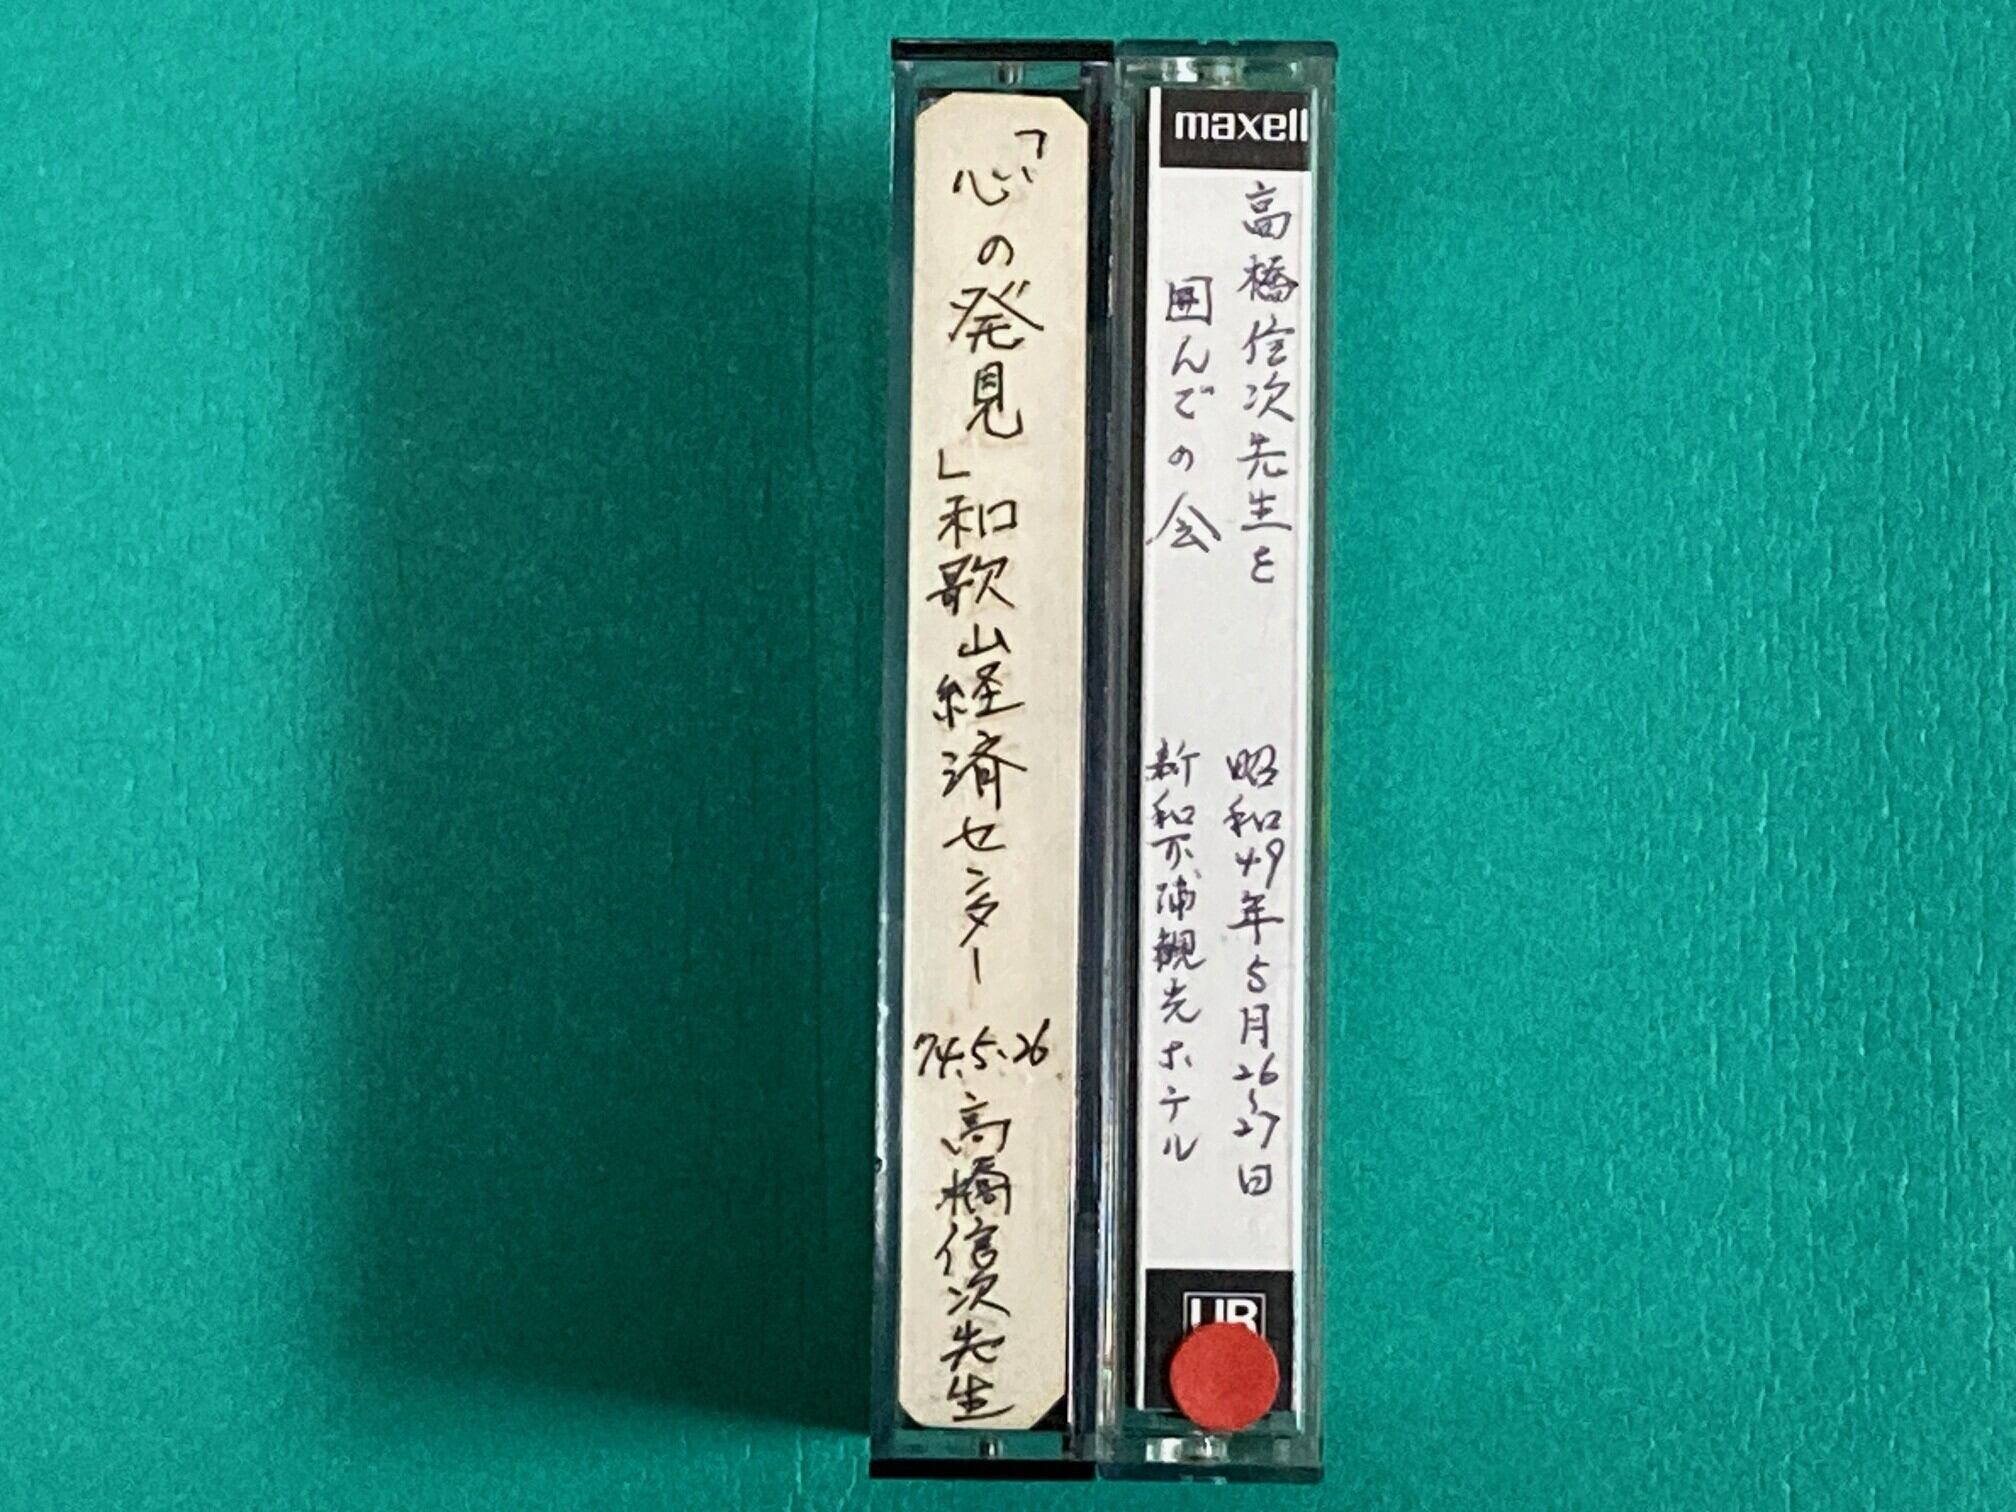 「心の発見」和歌山経済センター 74.5.26 高橋信次先生
maxell
高橋信次先生を
囲んでの会
昭和49年5月26~27日
新和歌浦観光ホテル
UR